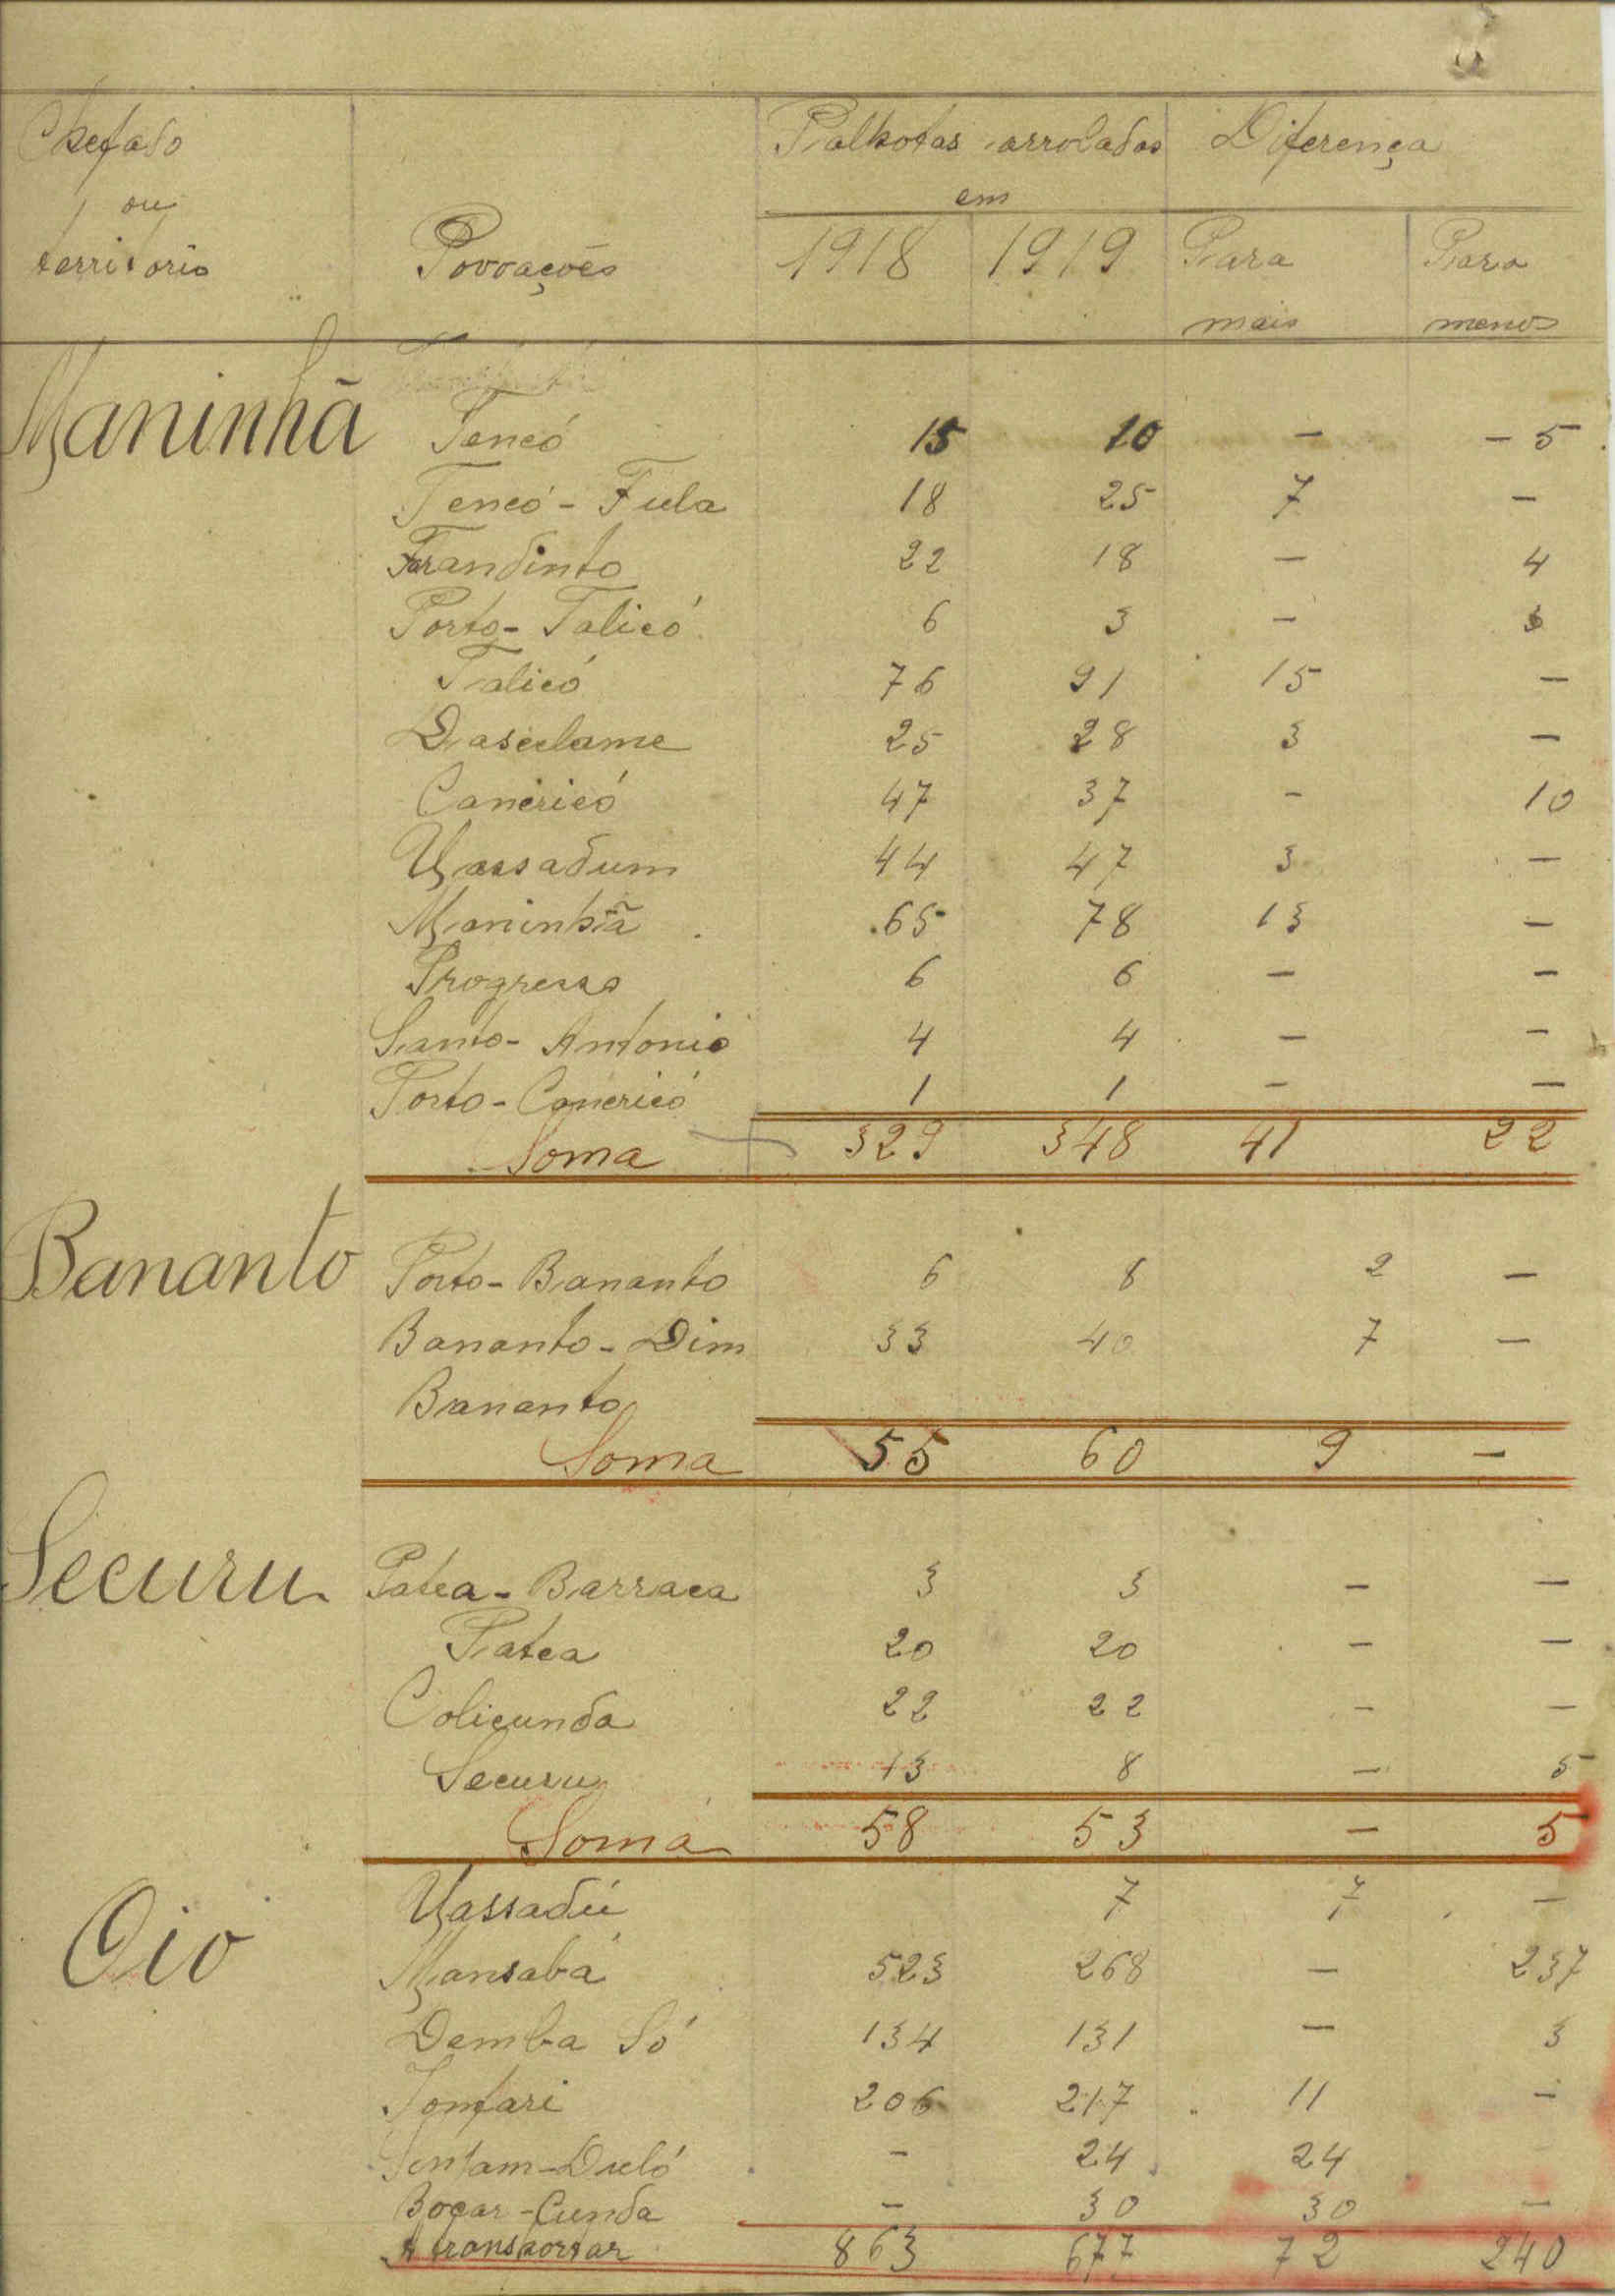 Chefado ou territorio Povoações Palhotas arroladas em Diferença
1918 1919 Para mais Para menos
Maninhã Tencó 15 10 — — 5
Tencó - Fula 18 25 7 —
Farandinto 22 18 — 4
Porto - Talicó 6 3 — 3
Talicó 76 91 15 —
Dasilame 25 28 3 —
Canericó 47 37 — 10
Massadum 44 47 3 —
Maninhã 65 78 13 —
Progresso 6 6 — —
Santo - Antonio 4 4 — —
Porto - Canericó 1 1 — —
Soma 329 348 41 22
Bananto Porto - Bananto 6 8 2 —
Bananto - Dim 33 40 7 —
Bananto
Soma 55 60 9 —
Securu Patea - Barraca 3 3 — —
Patea 20 20 — —
Colicunda 22 22 — —
Securu 13 8 — 5
Soma 58 53 — 5
Oio Massadú 7 7 —
Mansabá 523 268 — 237
Demba Só 134 131 — 3
Tonfari 206 217 11 —
— 24 24
Boçar - Cunda — 30 30 —
A transportar 863 677 72 240